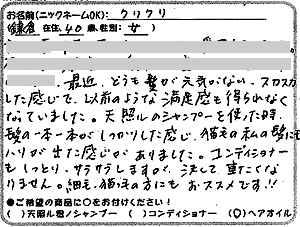 お名前(ニックネームOK): クリクリ
鎌倉 在住、40 歳、性別: 女 )
最近、どうも髪が元気がない、スカスカ
した感じで、以前のような満足感も得られなく
なっていました。天照ルのシャンプーを使った時、
髪の一本一本がしっかりした感じ、猫毛の私の髪にも
ハリが出た感じがありました。コンディショナー
もしっとり、サラサラしますが、決して重たくな
りません。細毛、猫毛の方にも おススメです!!
●ご希望の商品に○をお付けください!
( )天照ル君シャンプー ( )コンディショナー (○)ヘアオイル